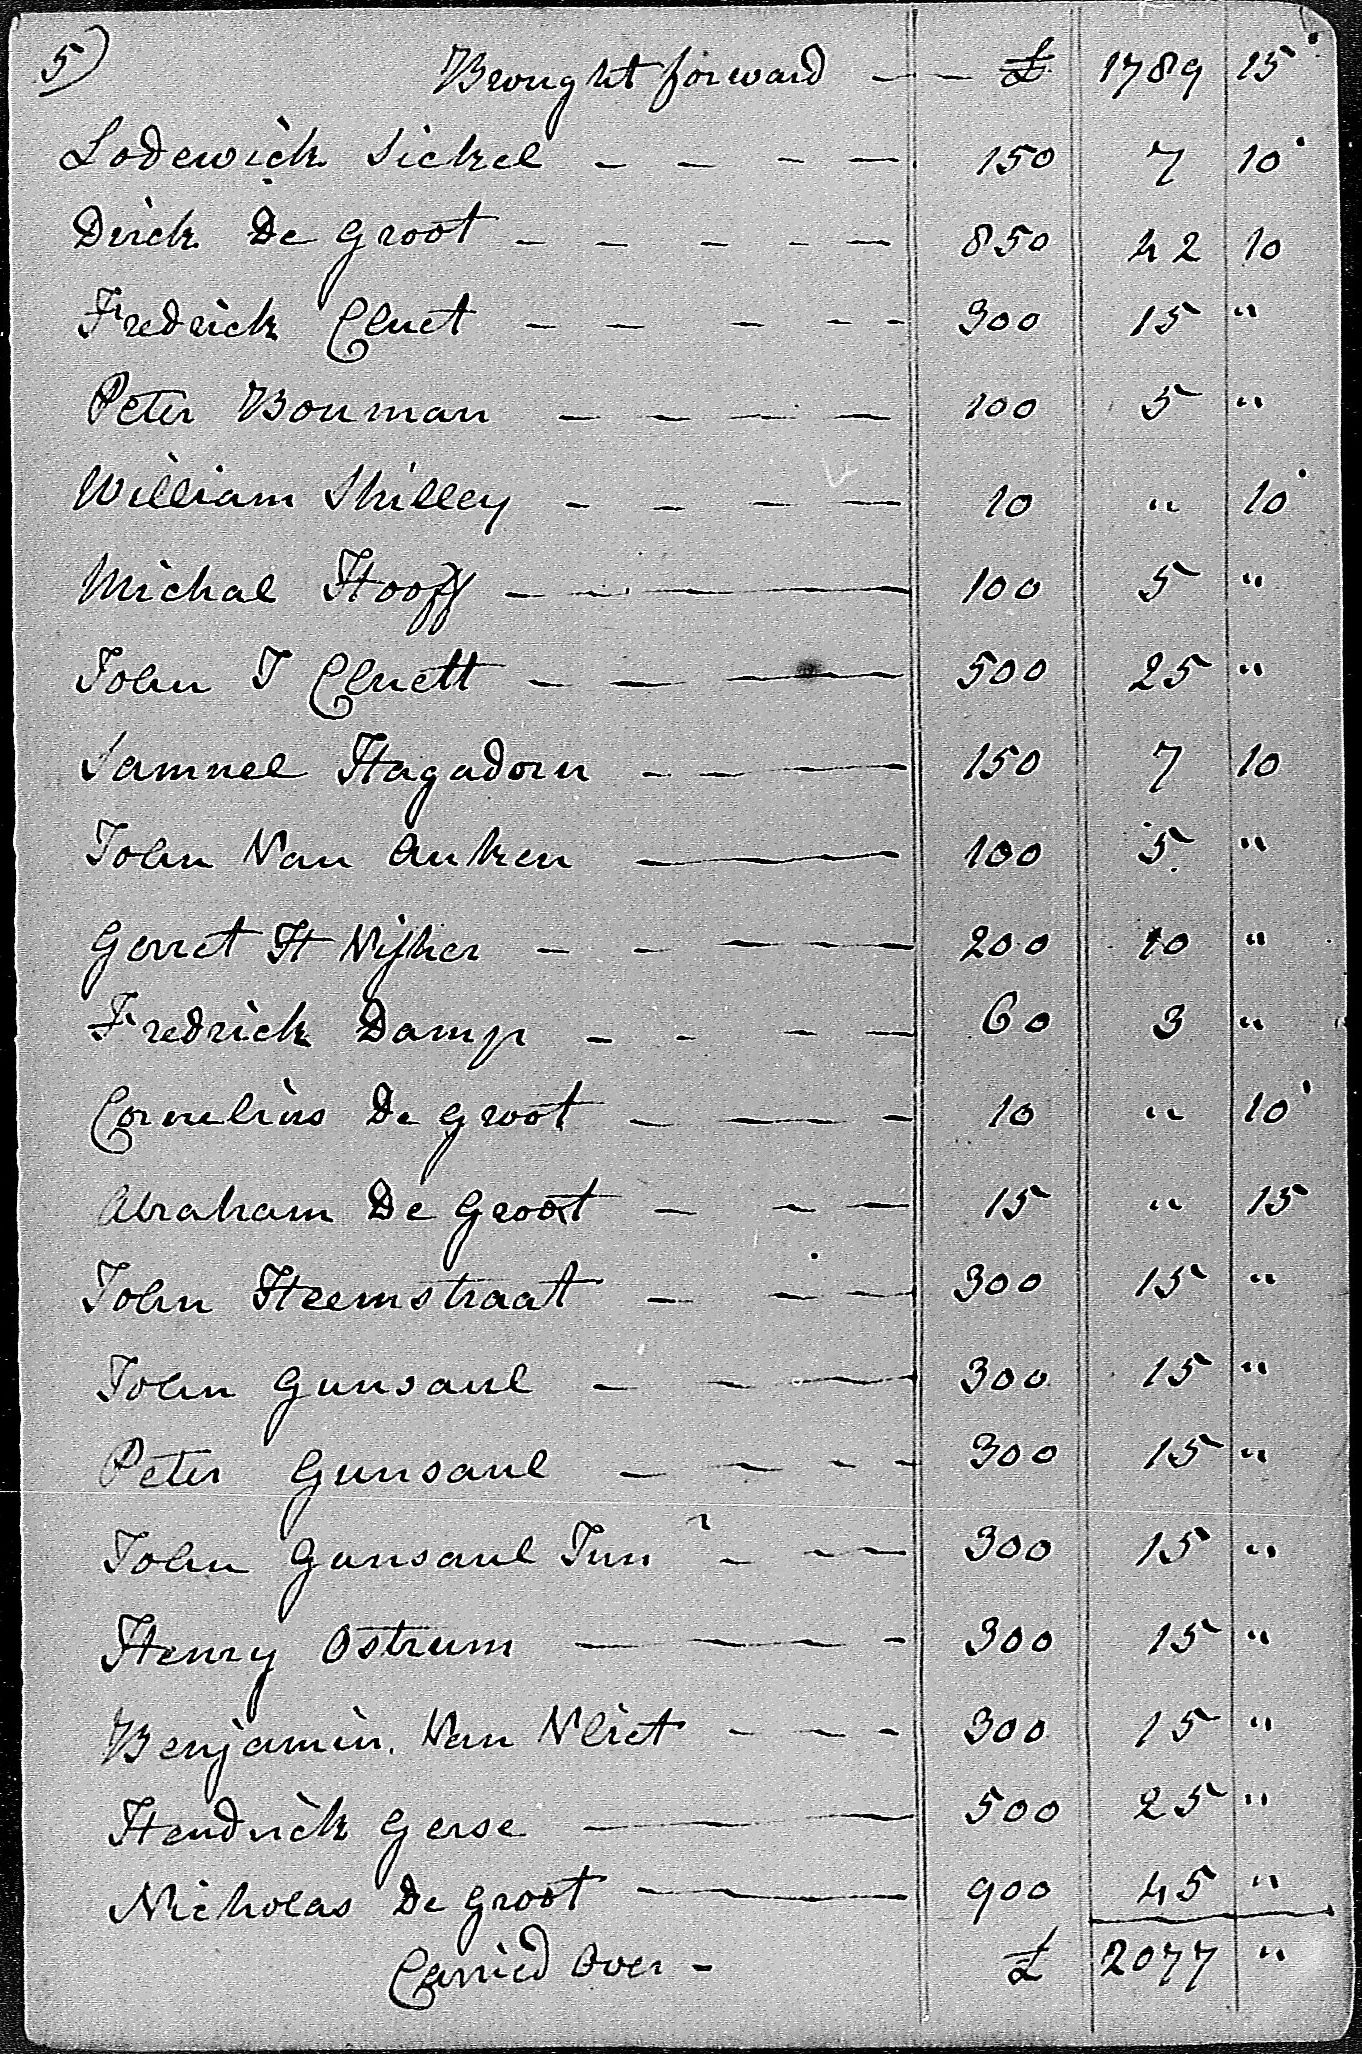 5)
Brought forward - - £ 1789 15
Lodewick Sickel - - - - 150 7 10
Dirck De Groot - - - - - 850 42 10
Fredrick Cluet - - - - - 300 15 "
Peter Bouman - - - - 100 5 "
William Shilley - - - - 10 " 10
Michal Hooff - - - 100 5 "
John J Cluett - - - 500 25 "
Samuel Hagadorn - - - 150 7 10
John Van Anken - 100 5 "
Gerret H Nifker - - - - 200 10 "
Fredrick Damp - - - - 60 3 "
Cornelius De Groot - - - 10 " 10
Abraham De Groot - - - 15 " 15
John Heemstraat - - - 300 15 "
John Gunsaul - - - 300 15 "
Peter Gunsaul - - - - 300 15 "
John Gunsaul Junr - - - 300 15 "
Henry Ostrum - - - - 300 15 "
Benjamin Van Vliet - - - 300 15 "
Hendrick Gerse - - 500 25 "
Nicholas De Groot - - 900 45 "
Carried Over - £ 2077 "